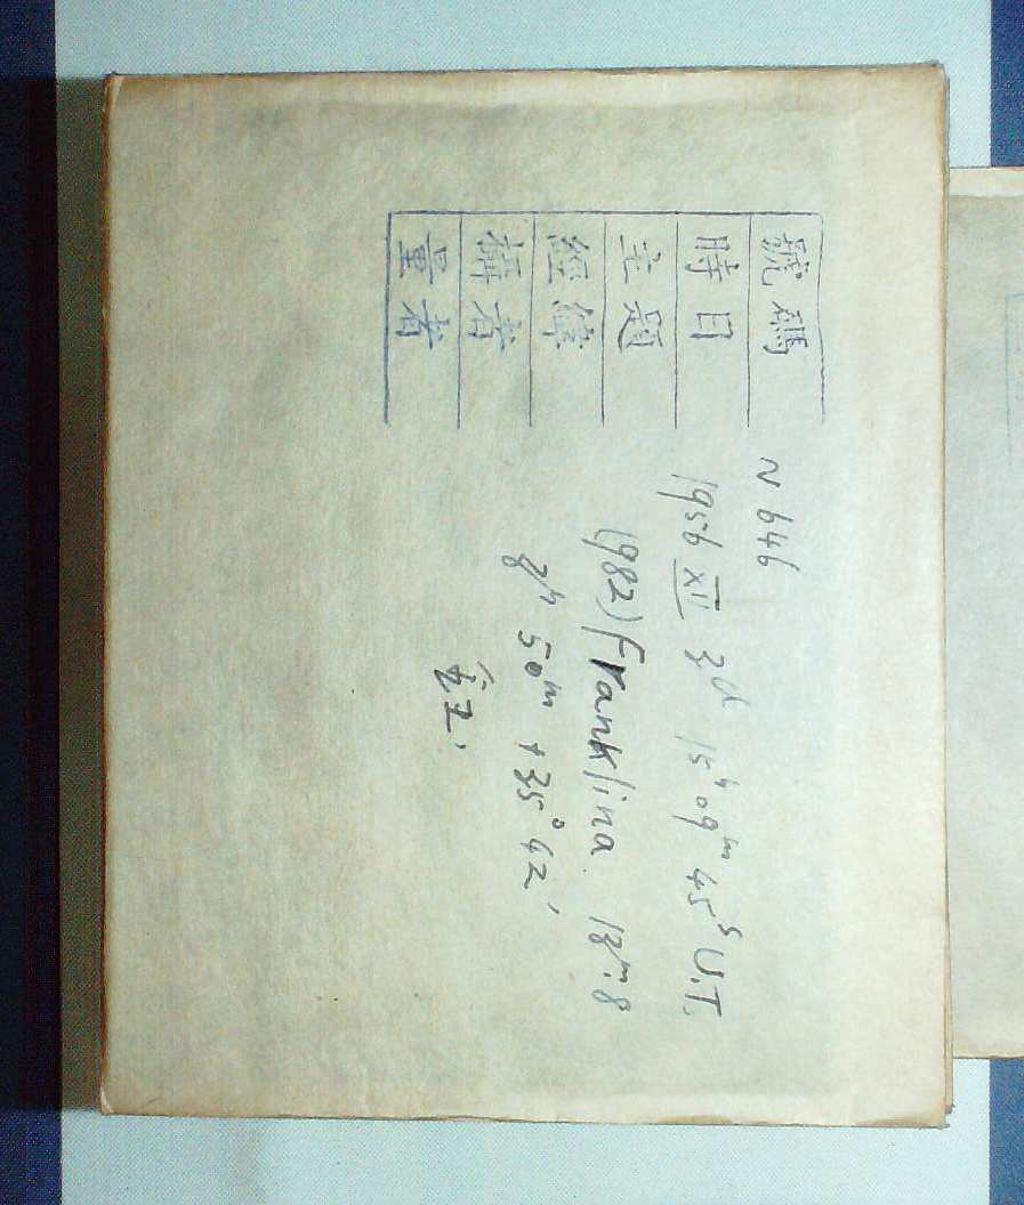 號碼 N 646
時日 1956 XII 3ᵈ 15ʰ 09ᵐ 45ˢ U.T.
主題 (982) Franklina 13ᵐ.8
經緯 3ʰ 50ᵐ +35° 42'
攝者
量者